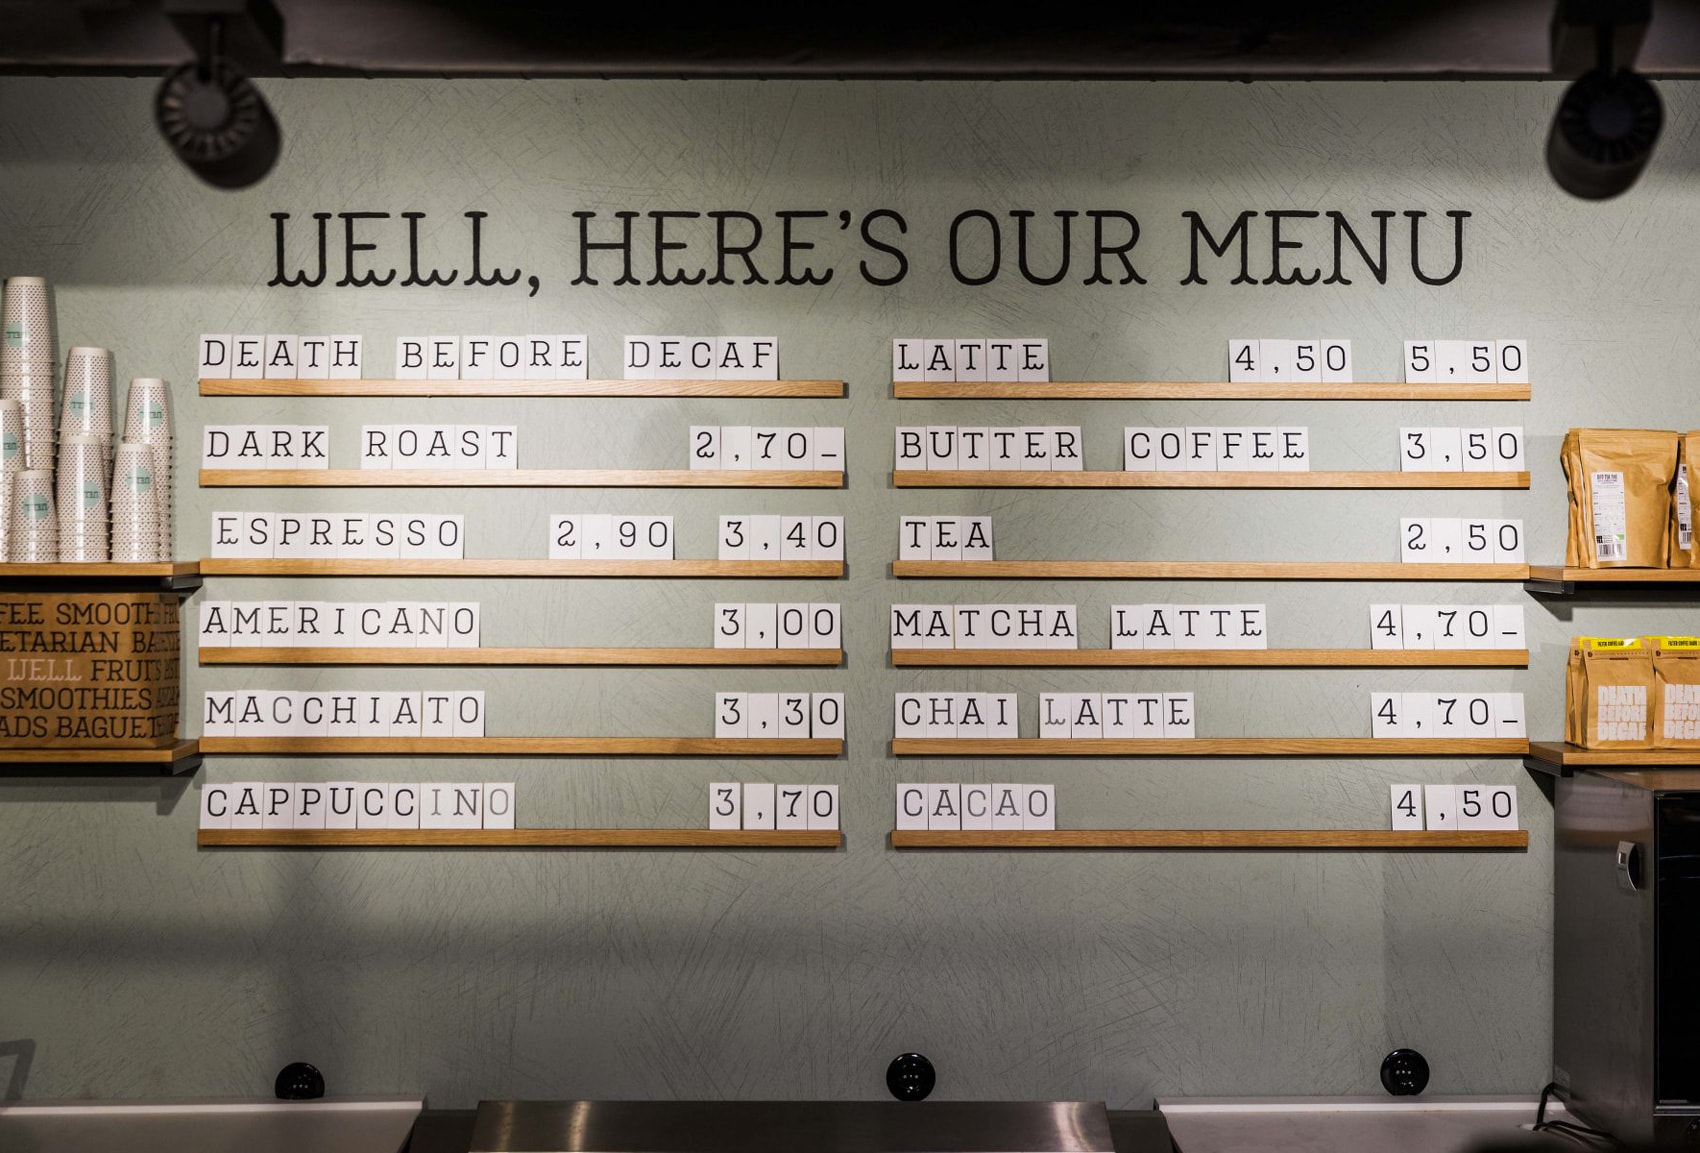 WELL, HERE'S OUR MENU
DEATH BEFORE DECAF
DARK ROAST 2,70_
ESPRESSO 2,90 3,40
AMERICANO 3,00
MACCHIATO 3,30
CAPPUCCINO 3,70
LATTE 4,50 5,50
BUTTER COFFEE 3,50
TEA 2,50
MATCHA LATTE 4,70_
CHAI LATTE 4,70_
CACAO 4,50
FEE SMOOTH
ETARIAN BA
WELL FRUIT
SMOOTHIES
ADS BAGUET
DEATH
BEFORE
DECAF